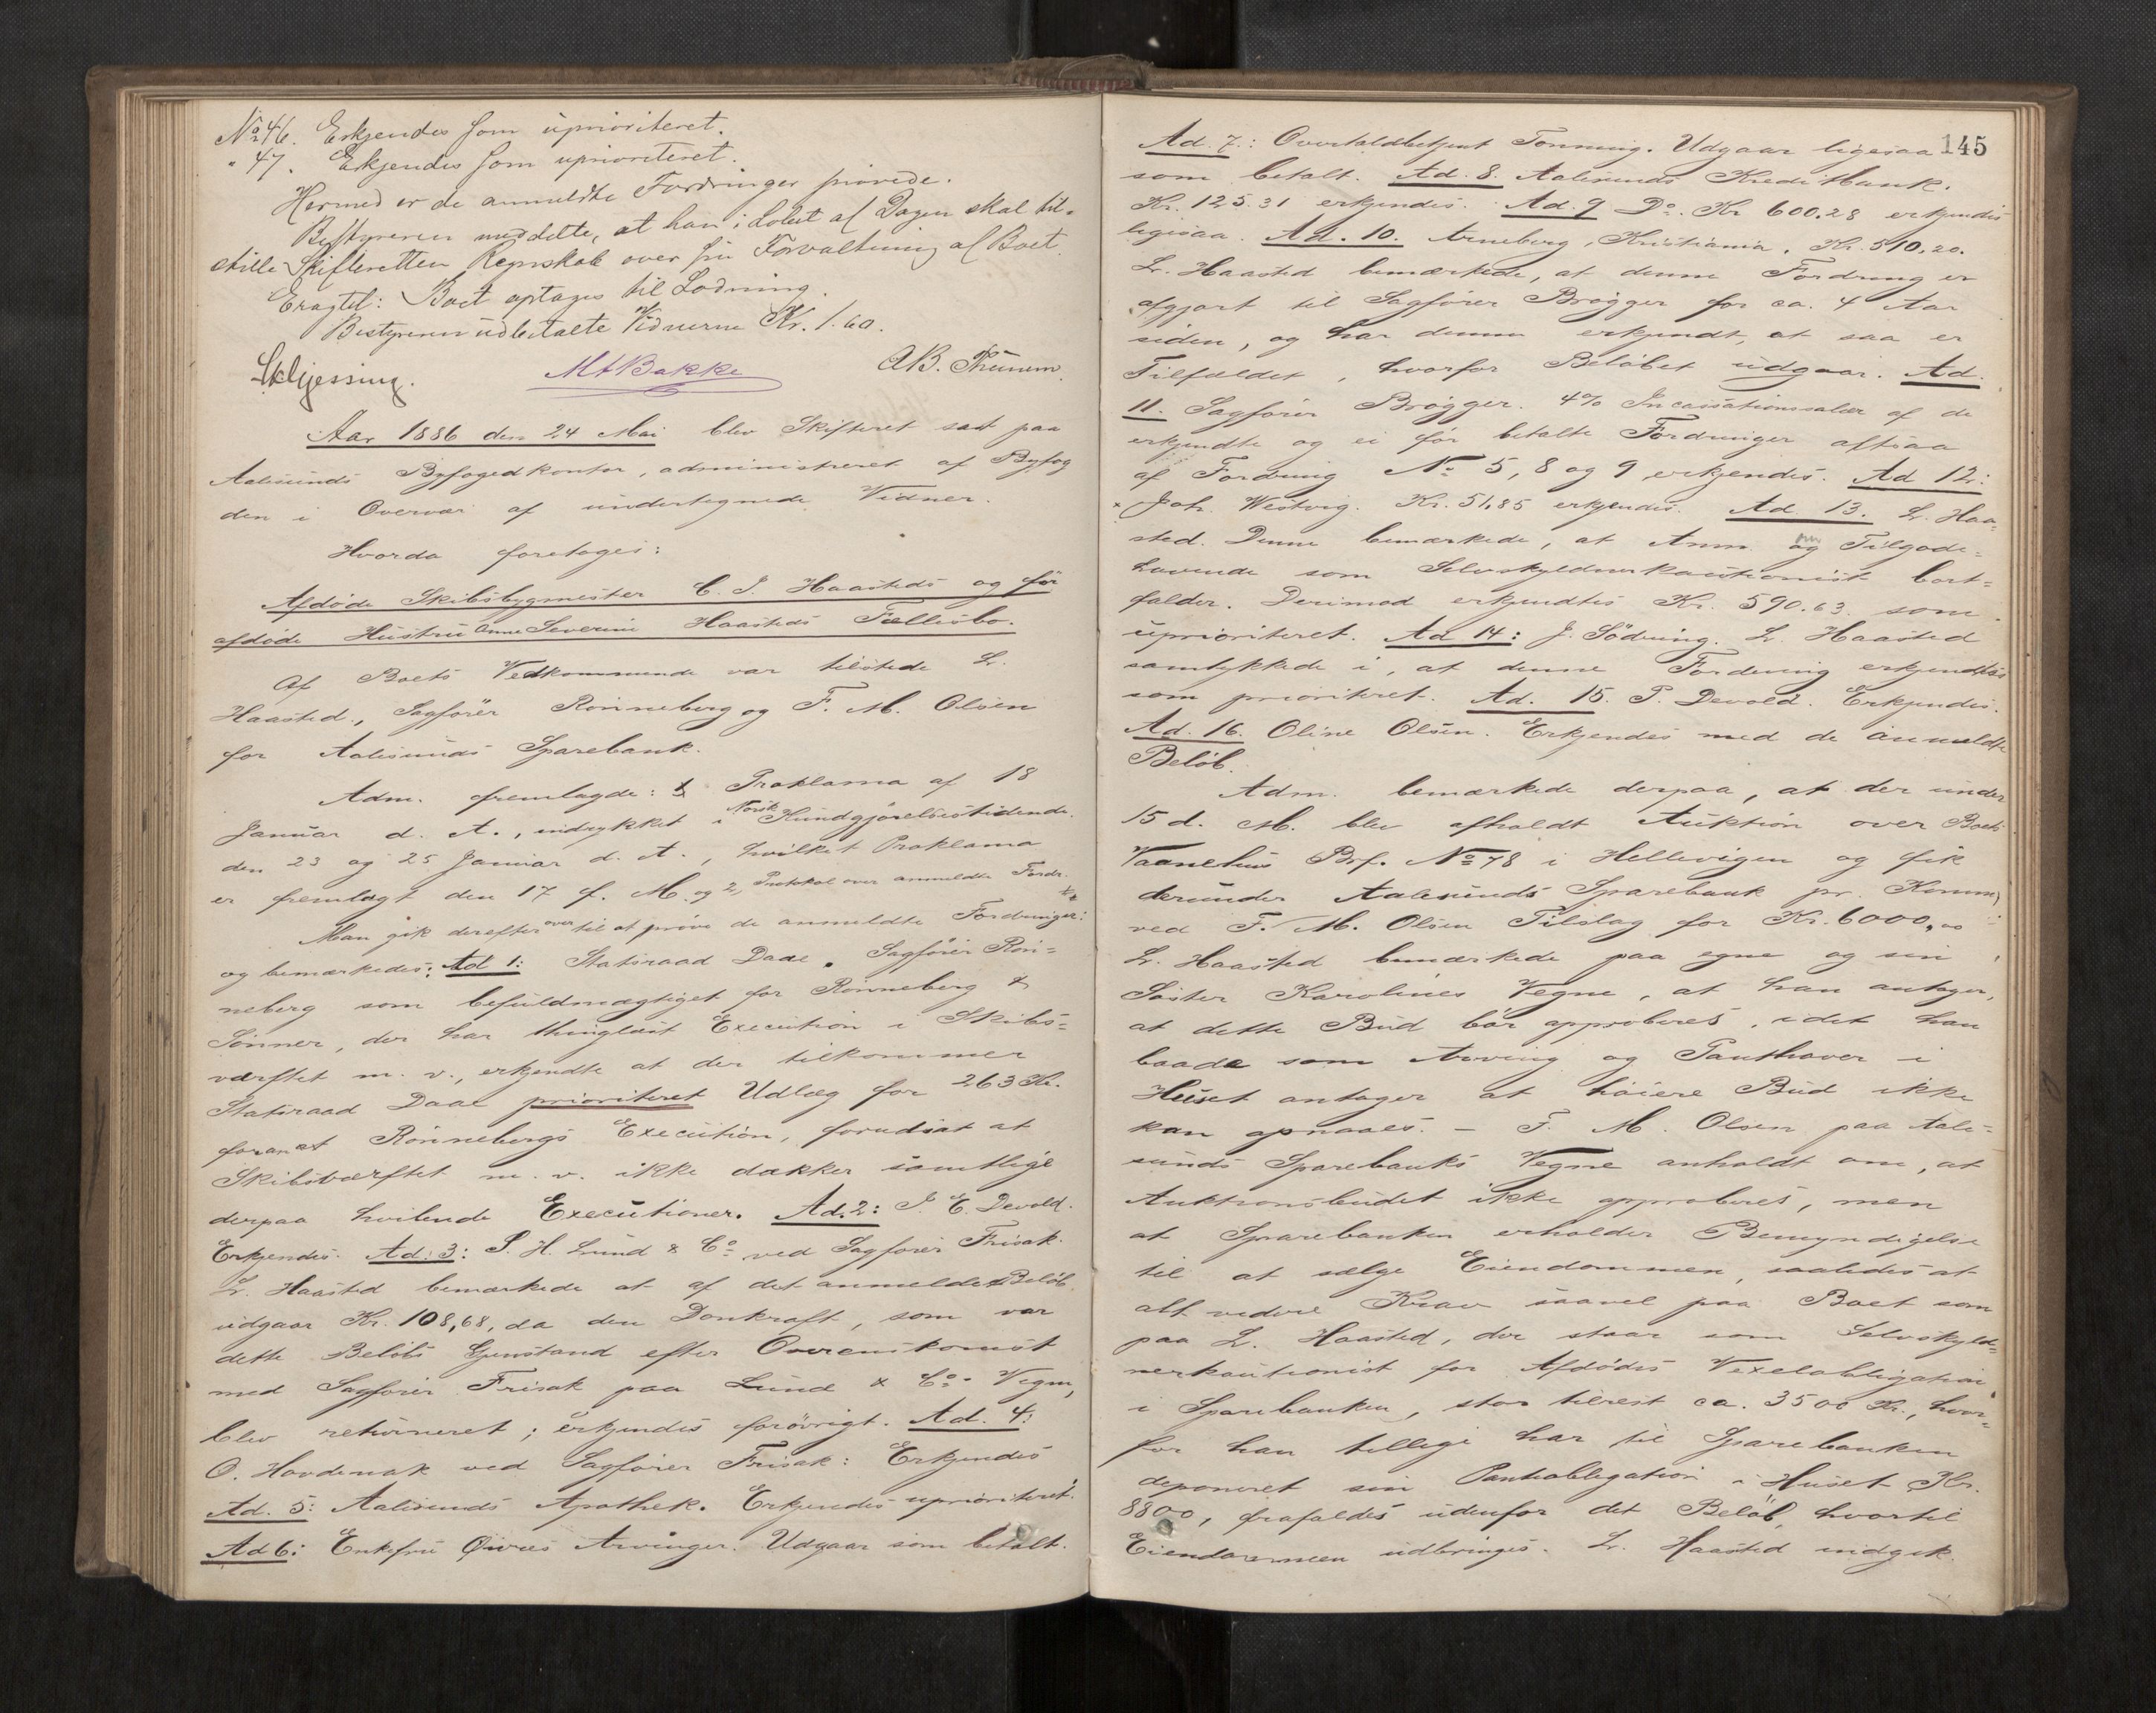 No 46. Erkjendes som uprioriteret.
" 47. Erkjendes som uprioriteret.
Hermed er de anmeldte Fordringer prøvede.
Bestyreren meddelte, at han i Løbet af Dagen skal til-
stille Skifteretten Regnskab over sin Forvaltning af Boet.
Eragtet: Boet optages til Lodning.
Bestyreren udbetalte Vidnerne Kr. 1.60.
M A Bakke
Aar 1886 den 24 Mai blev Skifteret sat paa
Aalesunds Byfogedkontor, administreret af Byfog
den i Overvær af undertegnede Vidner.
Hvorda foretoges:
Afdøde Skibsbygmester C. J. Haasteds og før
afdøde Hustru Anne Severine Haasteds Fællesbo.
Af Boets Vedkommende var tilstede L.
Haasted, Sagfører Rønneberg og F. M. Olsen
for Aalesunds Sparebank.
Adm. fremlagde: 1, Proklama af 18
Januar d. A., indrykket i Norsk Kundgjørelsestidende
den 23 og 25 Januar d. A., hvilket Proklama
er fremlagt den 17 f. M. og 2, Protokol over anmeldte Fordr.
Man gik derefter over til at prøve de anmeldte Fordringer:
og bemærkedes: Ad 1: Statsraad Daae. Sagfører Røn-
neberg som befuldmægtiget for Rønneberg &
Sønner, der har thinglæst Execution i Skibs-
værftet m. v., erkjendte at der tilkommer
Statsraad Daae prioriteret Udlæg for 263 Kr.
foranat Rønnebergs Execution, forudsat at
Skibsværftet m. v. ikke dækker samtlige
derpaa hvilende Executioner. Ad. 2: J. E. Devold.
Erkjendes. Ad. 3: S. H. Lund & Co ved Sagfører Frisak.
L. Haasted bemærkede at af det anmeldte Beløb
udgaar Kr. 108,68, da den Donkraft, som var
dette Beløbs Gjenstand efter Overenskomst
med Sagfører Frisak paa Lund & Co Vegne,
blev returneret; erkjendes forøvrigt. Ad. 4:
O. Hovdenak ved Sagfører Frisak: Erkjendes
Ad. 5: Aalesunds Apothek. Erkjendes uprioriteret.
Ad 6: Enkefru Øwres Arvinger. Udgaar som betalt.
145
Ad. 7.: Overtoldbetjent Tonning. Udgaar ligesaa
som betalt. Ad. 8. Aalesunds Kreditbank.
Kr. 125.31 erkjendes. Ad. 9 Do. Kr 600.28 erkjendes
ligesaa. Ad. 10. Arneberg, Kristiania. Kr. 510.20.
L. Haasted bemærkede, at denne Fordring er
afgjort til Sagfører Brøgger for ca. 4 Aar
siden, og har denne erkjendt, at saa er
Tilfældet, hvorfor Beløbet udgaar. Ad.
11. Sagfører Brøgger. 4% Incassationssalær af de
erkjendte og ei før betalte Fordringer altsaa
af Fordring No 5, 8 og 9 erkjendes. Ad 12:
x Joh. Westvig. Kr. 51,85 erkjendes. Ad 13. L. Haa-
sted. Denne bemærkede, at Anm. og Tilgode-
havende som Selvskyldnerkautionist bort-
falder. Derimod erkjendtes Kr. 590.63 som
uprioriteret. Ad 14: J. Södring. L. Haasted
samtykkede i, at denne Fordring erkjendtes
som prioriteret. Ad. 15. P. Devold. Erkjendes.
Ad. 16. Oline Olsen. Erkjendes med de anmeldte
Beløb.
Adm. bemærkede derpaa, at der under
15 d. M. blev afholdt Auktion over Boets
Vaanehus Brf. No 78 i Hellevigen og fik
derunder Aalesunds Sparebank pr. Komm.
ved F. M. Olsen Tilslag for Kr. 6000,00
L. Haasted bemærkede paa egne og sin
Søster Karolines Vegne, at han antager,
at dette Bud bør approberes, idet han
baade som Arving og Panthaver i
Huset antager at høiere Bud ikke
kan opnaaes. – F. M. Olsen paa Aale-
sunds Sparebanks Vegne anholdt om, at
Auktionsbudet ikke approberes, men
at Sparebanken erholder Bemyndigelse
til at sælge Eiendommen, saaledes at
alt videre Krav saavel paa Boet som
paa L. Haasted, der staar som Selvskyld-
nerkautionist for Afdødes Vexelobligation
i Sparebanken, stor tilrest ca. 3500 Kr., hvor-
for han tillige har til Sparebanken
deponeret sin Pantobligation i Huset Kr.
8800, frafaldes udenfor det Beløb, hvortil
Eiendommen udbringes. L. Haasted indgik